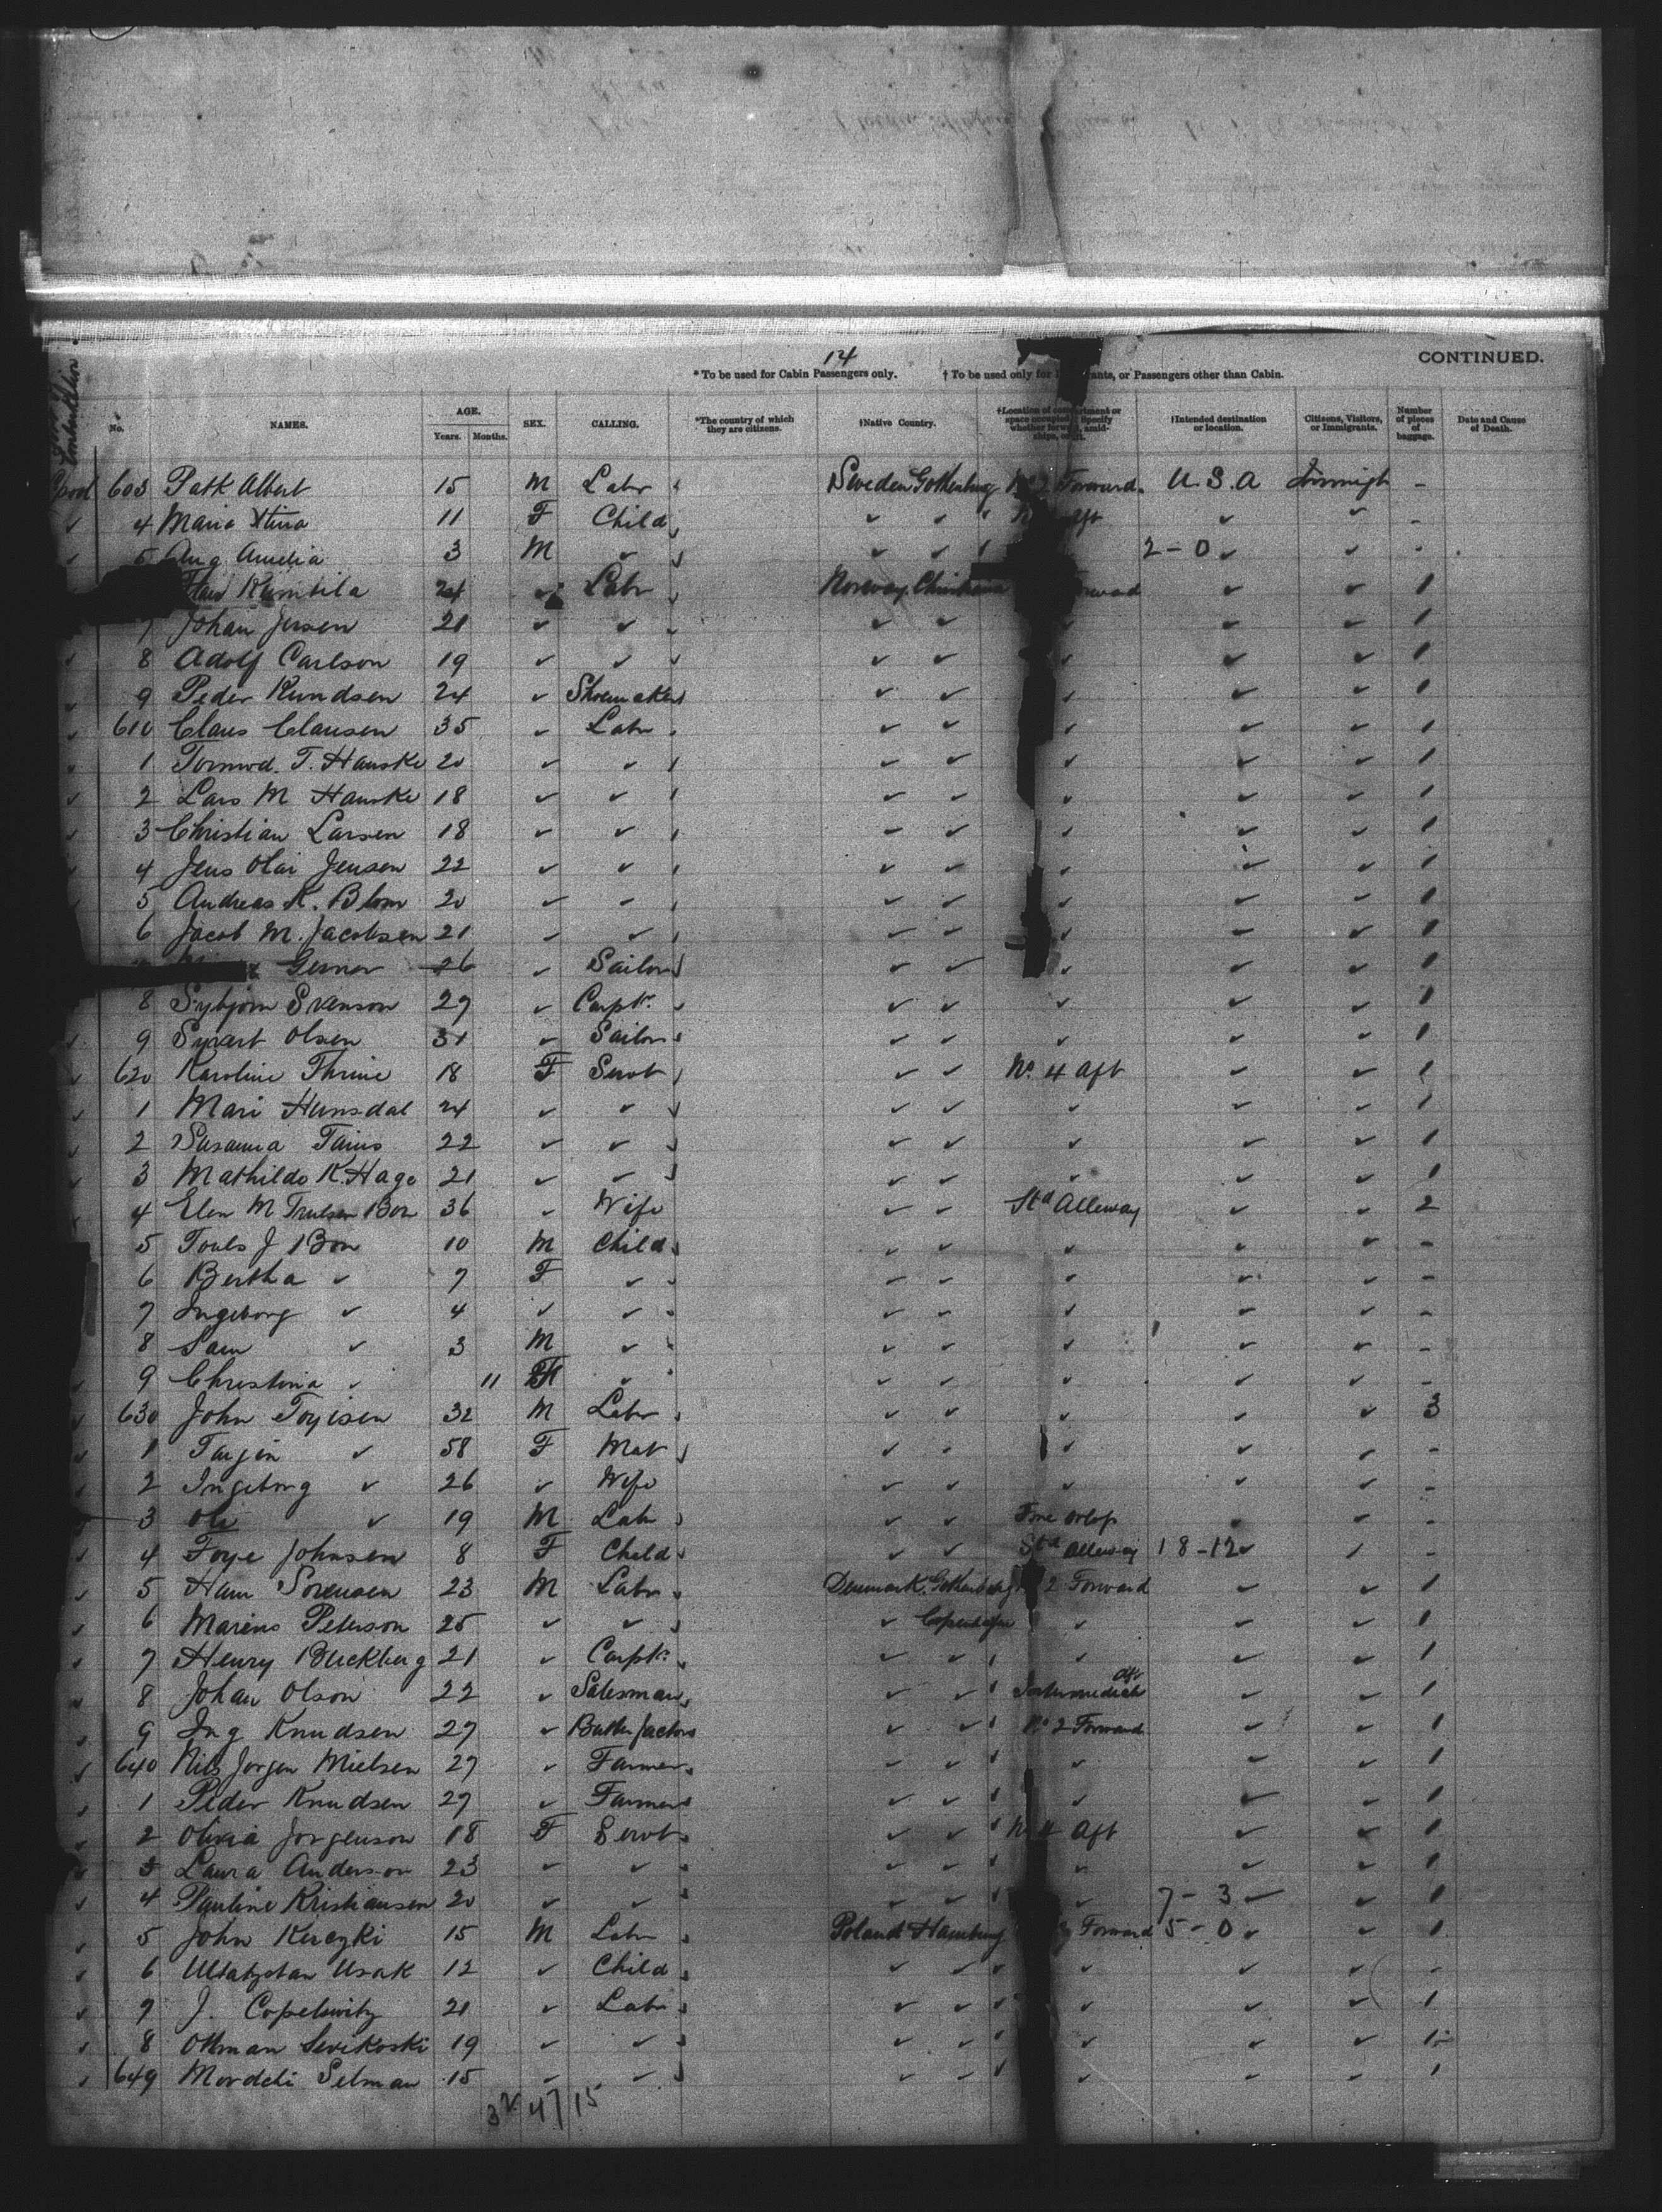 14
CONTINUED.
* To be used for Cabin Passengers only. † To be used only for or Passengers other than Cabin.
No. NAMES. AGE. Years. Months. SEX. CALLING. *The country of which they are citizens. †Native Country. †Location of compartment or space occupied. Specify whether forward, amidships, or aft. †Intended destination or location. Citizens, Visitors, or Immigrants. Number of pieces of baggage. Date and Cause of Death.
603 Patk Albert 15 M Labr Sweden Gothenburg Forward. U.S.A Immigt -
4 Maria Xtina 11 F Child ✓ ✓ Aft ✓ ✓ -
5 Aug Amelia 3 M ✓ ✓ ✓ 2-0 ✓ ✓ -
24 ✓ Labr Norway Christiania ✓ ✓ 1
7 Johan 21 ✓ ✓ ✓ ✓ ✓ ✓ ✓ 1
8 Adolf Carlson 19 ✓ ✓ ✓ ✓ ✓ ✓ ✓ 1
9 Peder Kundsen 24 ✓ Shoemaker ✓ ✓ ✓ ✓ ✓ 1
610 Claus Clausen 35 ✓ Labr ✓ ✓ ✓ ✓ ✓ 1
1 T. Hauske 20 ✓ ✓ ✓ ✓ ✓ ✓ ✓ 1
2 Lars M Hauske 18 ✓ ✓ ✓ ✓ ✓ ✓ ✓ 1
3 Christian Larsen 18 ✓ ✓ ✓ ✓ ✓ ✓ ✓ 1
4 Jens Olai Jensen 22 ✓ ✓ ✓ ✓ ✓ ✓ ✓ 1
5 Andreas K. Blom 20 ✓ ✓ ✓ ✓ ✓ ✓ ✓ 1
6 Jacob M. Jacobsen 21 ✓ ✓ ✓ ✓ ✓ ✓ ✓ 1
Gesner 26 ✓ Sailor ✓ ✓ ✓ ✓ ✓ 1
8 Sybjorn Svenson 27 ✓ Carptr. ✓ ✓ ✓ ✓ ✓ 1
9 Olsen 31 ✓ Sailor ✓ ✓ ✓ ✓ ✓ 1
620 Karoline Thrine 18 F Servt ✓ ✓ No. 4 Aft ✓ ✓ 1
1 Mari Hunsdal 24 ✓ ✓ ✓ ✓ ✓ ✓ ✓ 1
2 Susanna 22 ✓ ✓ ✓ ✓ ✓ ✓ ✓ 1
3 Mathilde K. Hage 21 ✓ ✓ ✓ ✓ ✓ ✓ ✓ 1
4 Elen M Trulsen Boe 36 ✓ Wife ✓ ✓ Std Alleway ✓ ✓ 2
5 J Boe 10 M Child ✓ ✓ ✓ ✓ ✓ -
6 Bertha ✓ 7 F ✓ ✓ ✓ ✓ ✓ ✓ -
7 Ingeborg ✓ 4 ✓ ✓ ✓ ✓ ✓ ✓ ✓ -
8 Sam ✓ 3 M ✓ ✓ ✓ ✓ ✓ ✓ -
9 Christina ✓ 11 F ✓ ✓ ✓ ✓ ✓ ✓ -
630 John Toyisen 32 M Labr ✓ ✓ ✓ ✓ ✓ 3
1 Tarjin ✓ 58 F Mat ✓ ✓ ✓ ✓ ✓ -
2 Ingeborg ✓ 26 ✓ Wife ✓ ✓ ✓ ✓ ✓ -
3 Ole ✓ 19 M Labr ✓ ✓ Fore Orlop ✓ ✓ -
4 Toye Johnsen 8 F Child ✓ ✓ Std Alleway 18-12 ✓ ✓ -
5 Hans Sorensen 23 M Labr Denmark. Gothenburg 2 Forward ✓ ✓ 1
6 Marins Peterson 25 ✓ ✓ ✓ Copenhagen ✓ ✓ ✓ 1
7 Henry Buckberg 21 ✓ Carptr. ✓ ✓ ✓ ✓ ✓ 1
8 Johan Olson 22 ✓ Salesman ✓ ✓ Intermediate Aft ✓ ✓ 1
9 Ing Knudsen 27 ✓ Butter factor ✓ ✓ No 2 Forward ✓ ✓ 1
640 Nils Jorgen Nielsen 27 ✓ Farmer ✓ ✓ ✓ ✓ ✓ 1
1 Peder Knudsen 27 ✓ Farmer ✓ ✓ ✓ ✓ ✓ 1
2 Olivia Jorgenson 18 F Servt ✓ ✓ No 4 Aft ✓ ✓ 1
3 Laura Anderson 23 ✓ ✓ ✓ ✓ ✓ ✓ ✓ 1
4 Pauline Kristiansen 20 ✓ ✓ ✓ ✓ ✓ 7-3 ✓ ✓ 1
5 John Kerczki 15 M Labr Poland Hamburg Forward 5-0 ✓ ✓ 1
6 Usak 12 ✓ Child ✓ ✓ ✓ ✓ ✓ -
7 J. Copelowitz 21 ✓ Labr ✓ ✓ ✓ ✓ ✓ 1
8 Ottman Sevikoski 19 ✓ ✓ ✓ ✓ ✓ ✓ ✓ 1
649 Mordchi Selman 15 ✓ ✓ ✓ ✓ ✓ ✓ ✓ 1
32 47/15